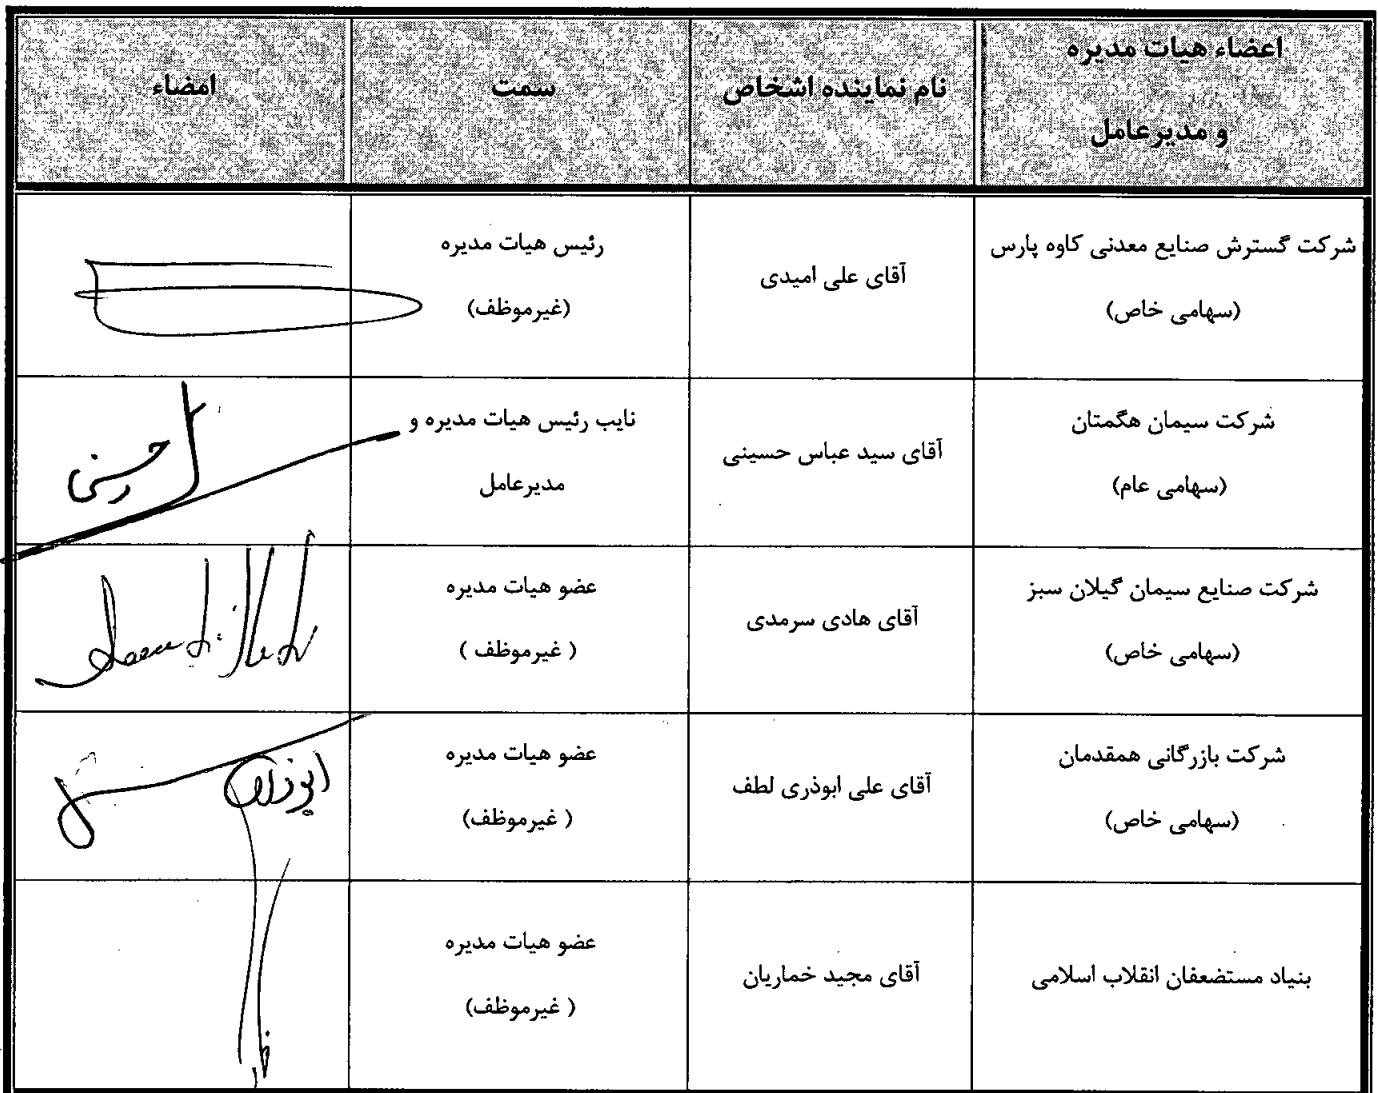 اعضاء هیات مدیره
و مدیرعامل
نام نماینده اشخاص
سمت
امضاء
شرکت گسترش صنایع معدنی کاوه پارس
(سهامی خاص)
آقای علی امیدی
رئیس هیات مدیره
(غیرموظف)
شرکت سیمان هگمتان
(سهامی عام)
آقای سید عباس حسینی
نایب رئیس هیات مدیره و
مدیرعامل
شرکت صنایع سیمان گیلان سبز
(سهامی خاص)
آقای هادی سرمدی
عضو هیات مدیره
( غیرموظف )
شرکت بازرگانی همقدمان
(سهامی خاص)
آقای علی ابوذری لطف
عضو هیات مدیره
( غیرموظف)
بنیاد مستضعفان انقلاب اسلامی
آقای مجید خماریان
عضو هیات مدیره
( غیرموظف)